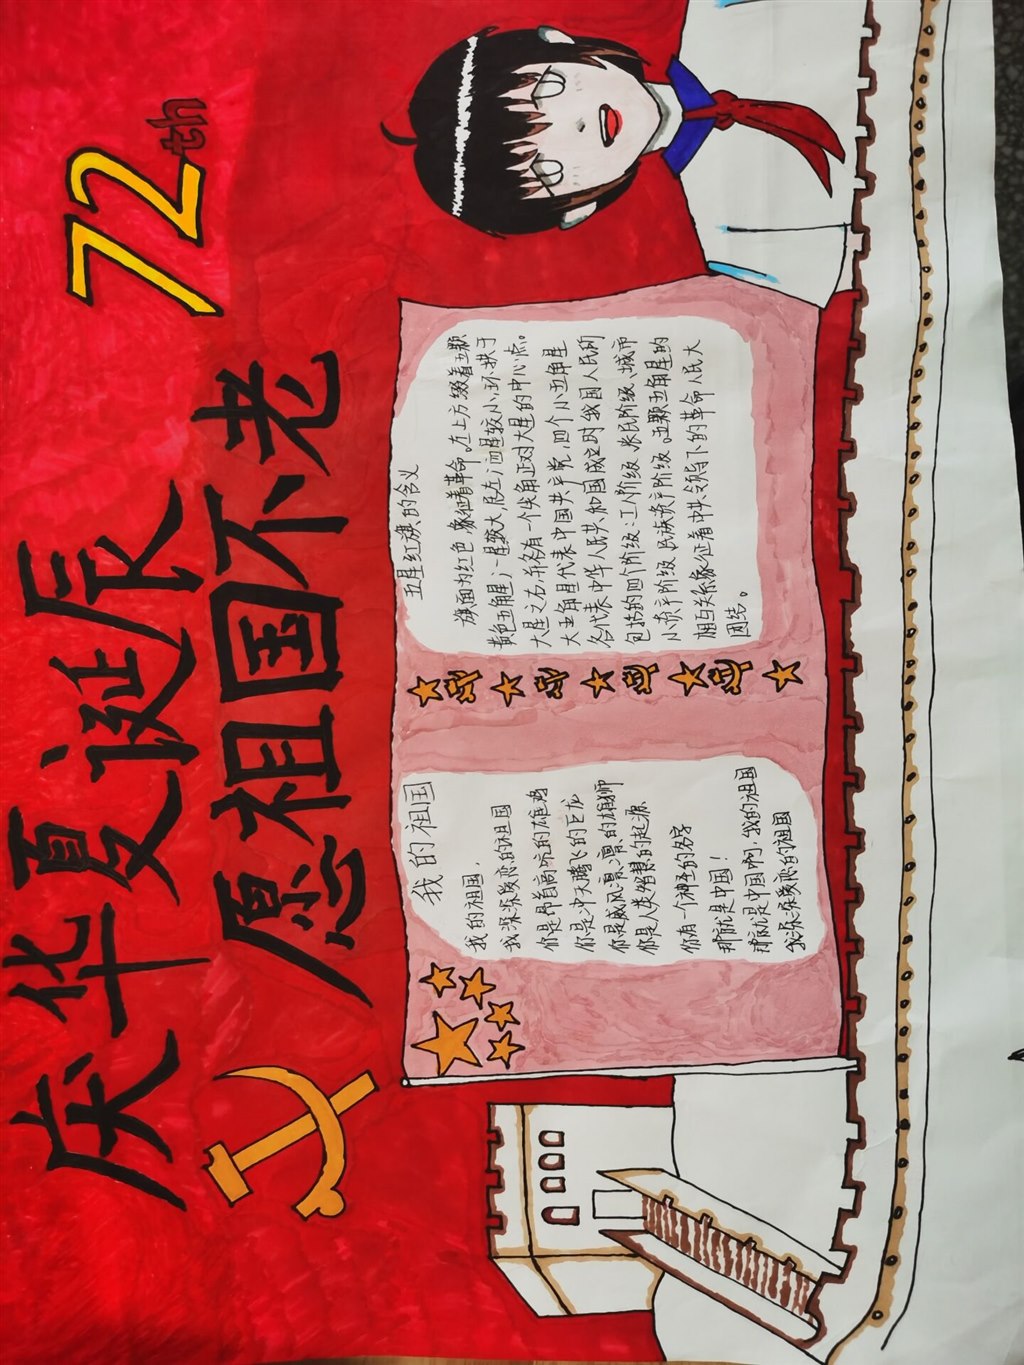 庆华夏诞辰
愿祖国不老
72th
我的祖国
我的祖国，
我深深爱恋的祖国
你是昂首高吭的雄鸡
你是冲天腾飞的巨龙
你是威风凛凛的雄狮
你是人类智慧的起源
你有一个神圣的名字
那就是中国！
那就是中国啊，我的祖国
我深深爱恋的祖国
五星红旗的含义
旗面为红色，象征着革命。左上方缀着五颗
黄色五角星，一星较大，居左；四星较小，环拱于
大星之右，并各有一个尖角正对大星的中心点。
大五角星代表中国共产党，四个小五角星
各代表中华人民共和国成立时我国人民所
包括的四个阶级：工人阶级、农民阶级、城市
小资产阶级、民族资产阶级。五颗五角星的
相互关系象征着中共领导下的革命人民大
团结。